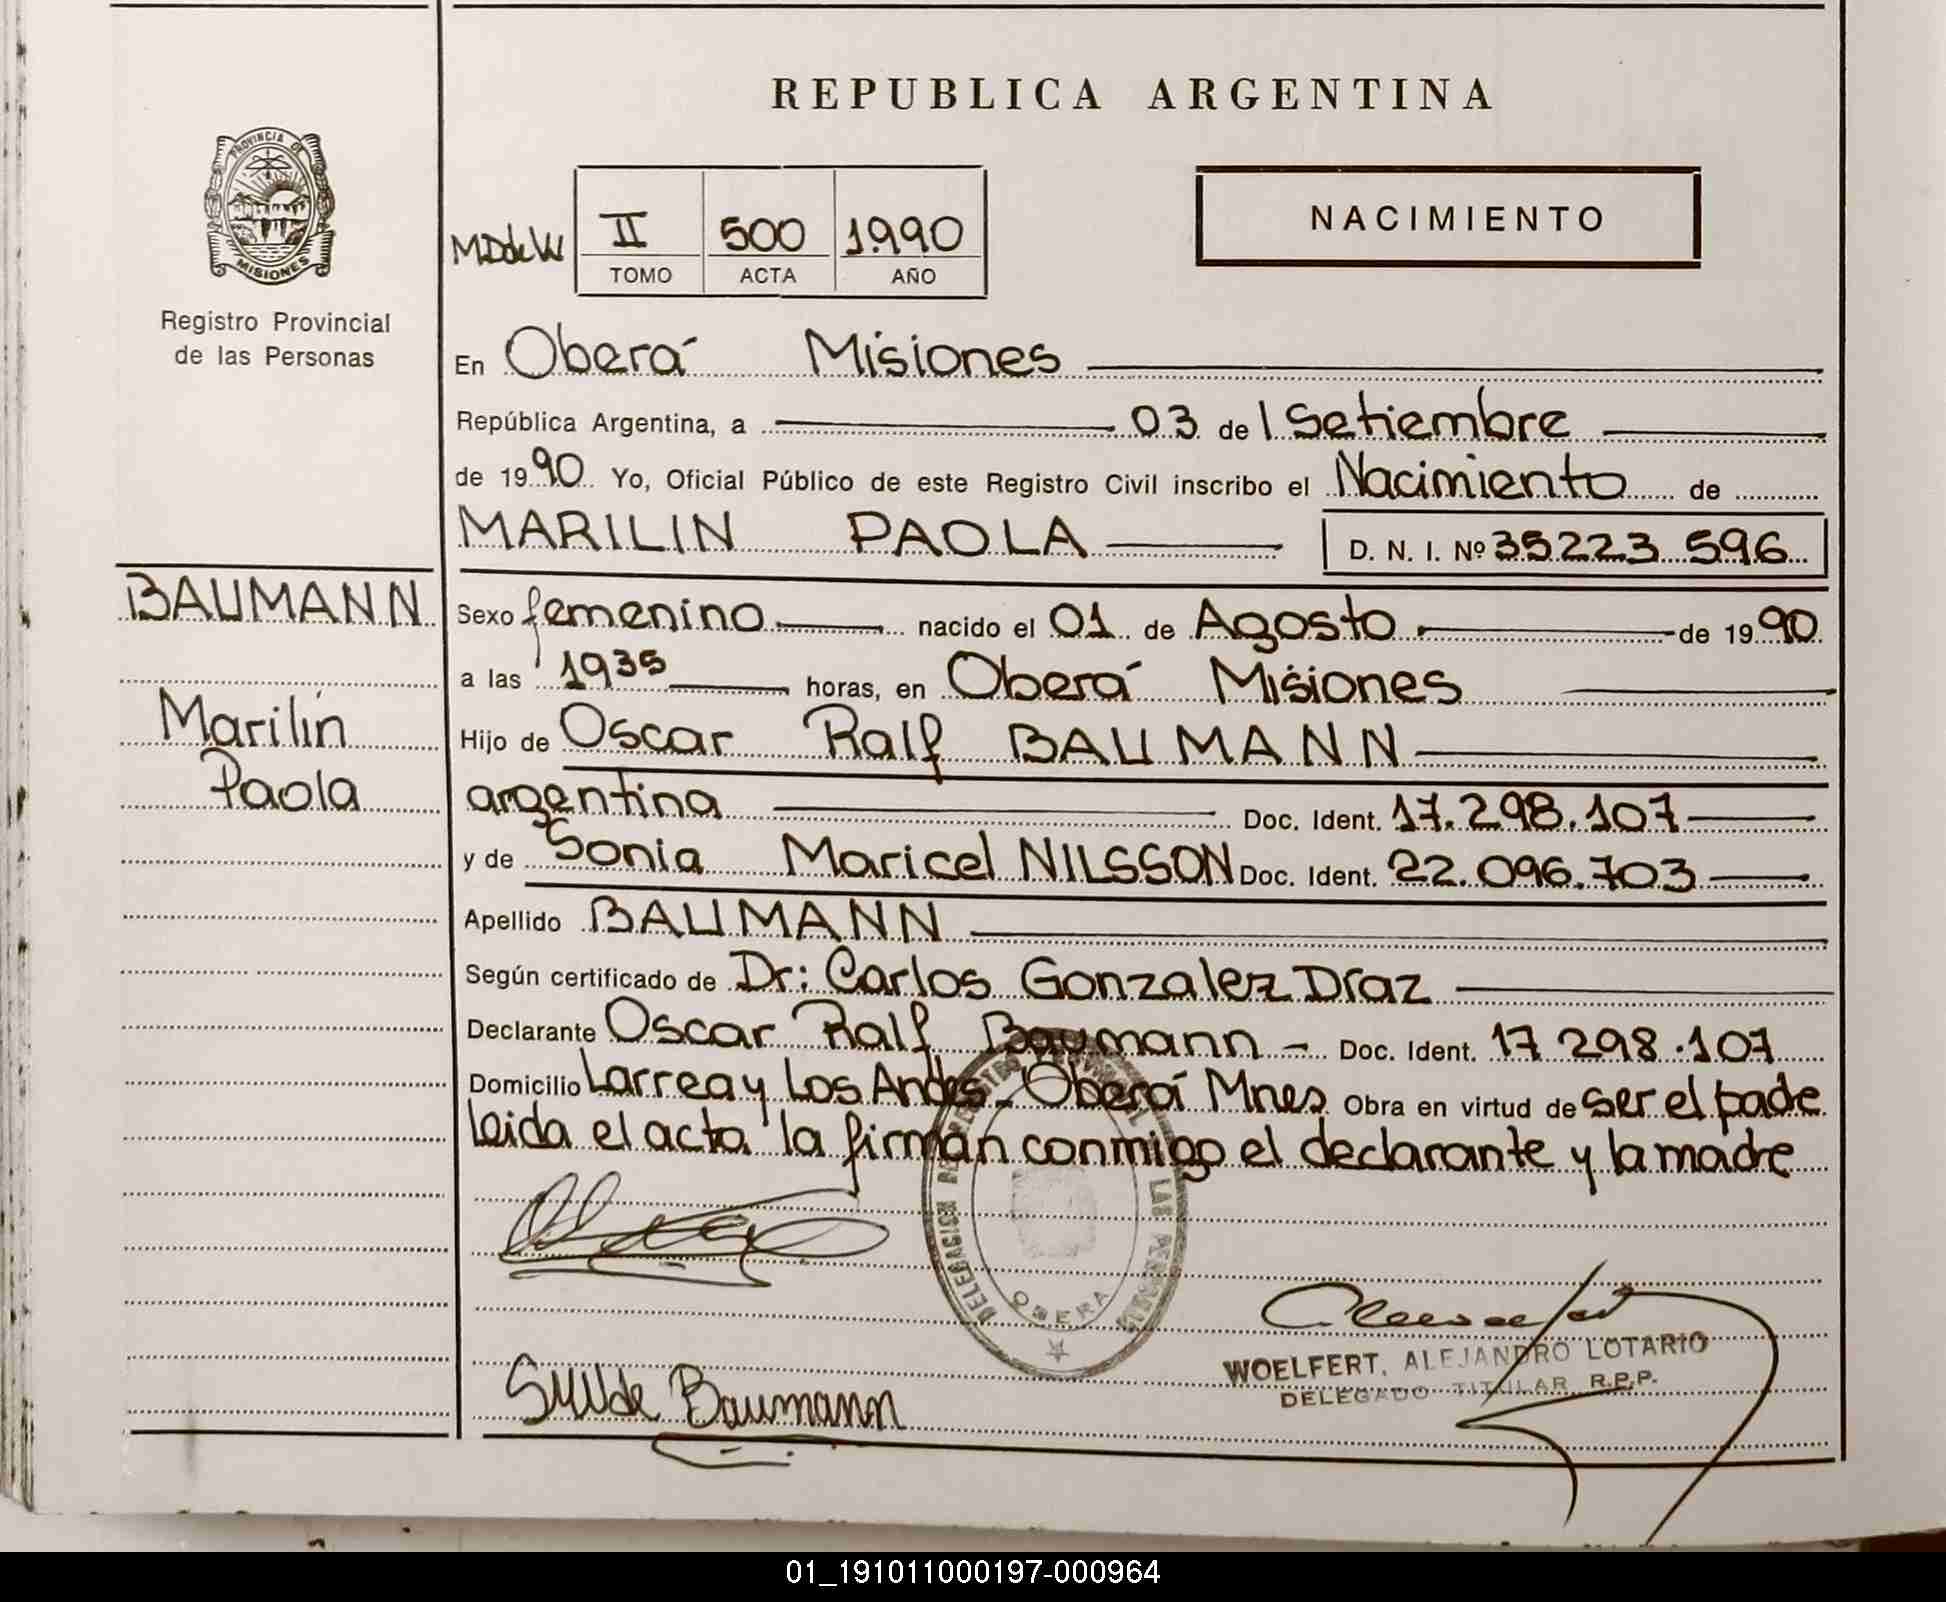 REPUBLICA ARGENTINA
PROVINCIA DE MISIONES
Registro Provincial
de las Personas
MDdeW
II 500 1990
TOMO ACTA AÑO
NACIMIENTO
En Oberá Misiones
República Argentina, a 03 de Setiembre
de 1990 Yo, Oficial Público de este Registro Civil inscribo el Nacimiento de
MARILIN PAOLA D. N. I. Nº 35223596
BAUMANN
Marilin
Paola
Sexo femenino nacido el 01 de Agosto de 1990
a las 1935 horas, en Oberá Misiones
Hijo de Oscar Ralf BAUMANN
argentina Doc. Ident. 17.298.107
y de Sonia Maricel NILSSON Doc. Ident. 22.096.703
Apellido BAUMANN
Según certificado de Dr: Carlos Gonzalez Díaz
Declarante Oscar Ralf Baumann - Doc. Ident. 17 298.107
Domicilio Larrea y Los Andes - Oberá Mnes Obra en virtud de ser el padre
leida el acta la firman conmigo el declarante y la madre
OBERA
WOELFERT, ALEJANDRO LOTARIO
DELEGADO TITULAR R.P.P.
Baumann
01_191011000197-000964